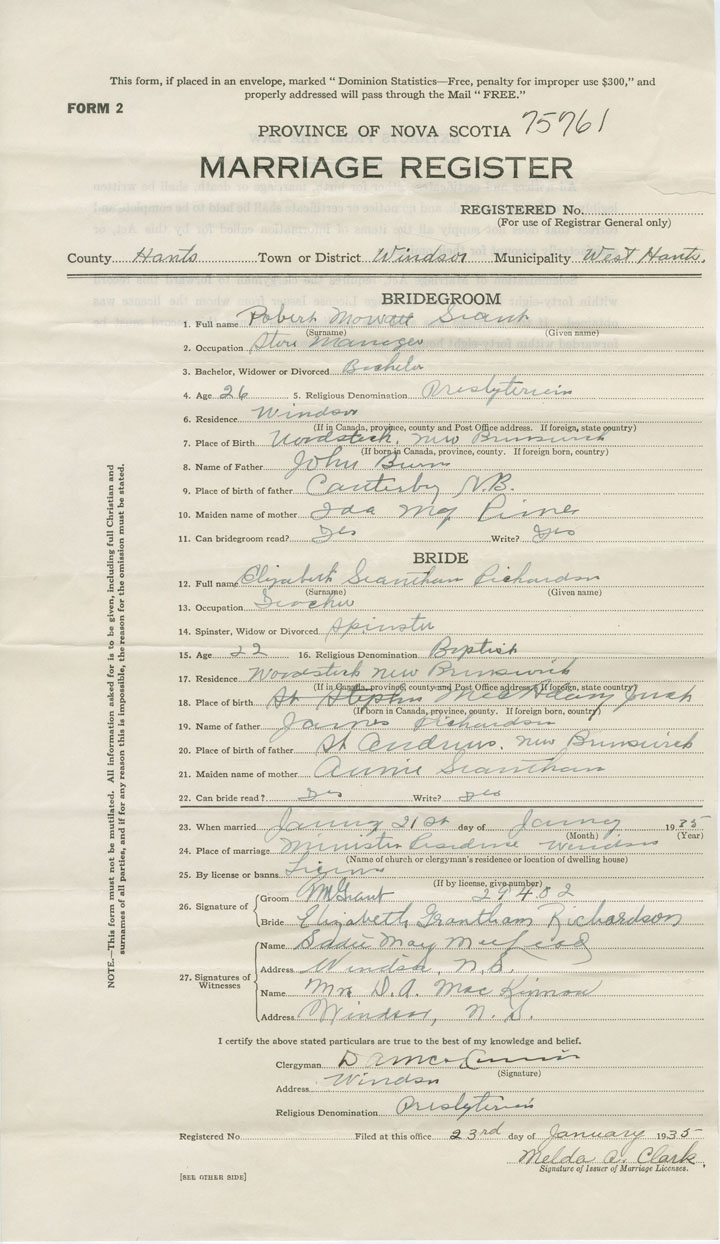 This form, if placed in an envelope, marked "Dominion Statistics—Free, penalty for improper use $300," and
properly addressed will pass through the Mail "FREE."
FORM 2
PROVINCE OF NOVA SCOTIA 75761
MARRIAGE REGISTER
REGISTERED No.
(For use of Registrar General only)
County Hants Town or District Windsor Municipality West Hants.
BRIDEGROOM
1. Full name Robert Mowatt Grant
(Surname) (Given name)
2. Occupation Store Manager
3. Bachelor, Widower or Divorced Bachelor
4. Age 26 5. Religious Denomination Presbyterian
6. Residence Windsor
(If in Canada, province, county and Post Office address. If foreign, state country)
7. Place of Birth Woodstock, New Brunswick
(If born in Canada, province, county. If foreign born, country)
8. Name of Father John
9. Place of birth of father N.B.
10. Maiden name of mother Ida May
11. Can bridegroom read? Yes Write? Yes
BRIDE
12. Full name Elizabeth Grantham Richardson
(Surname) (Given name)
13. Occupation Teacher
14. Spinster, Widow or Divorced Spinster
15. Age 22 16. Religious Denomination Baptist
17. Residence Woodstock New Brunswick
(If in Canada, province, county and Post Office address. If foreign, state country)
18. Place of birth St Stephen New Brunswick
(If born in Canada, province, county. If foreign born, country)
19. Name of father James Richardson
20. Place of birth of father St Andrews. New Brunswick
21. Maiden name of mother Annie Grantham
22. Can bride read? Yes Write? Yes
23. When married 21st day of 1935
(Month) (Year)
24. Place of marriage Windsor
(Name of church or clergyman's residence or location of dwelling house)
25. By license or banns
(If by license, give number)
29402
26. Signature of Groom RMGrant
Bride Elizabeth Grantham Richardson
27. Signatures of Witnesses
Name Sadie May MacLeod
Address Windsor, N.S.
Name Mrs D. A. MacKinnon
Address Windsor, N. S.
I certify the above stated particulars are true to the best of my knowledge and belief.
Clergyman D A MacKinnon
(Signature)
Address Windsor
Religious Denomination Presbyterian
Registered No. Filed at this office 23rd day of January 1935
Melda A. Clark
Signature of Issuer of Marriage Licenses.
[SEE OTHER SIDE]
NOTE.—This form must not be mutilated. All information asked for is to be given, including full Christian and
surnames of all parties, and if for any reason this is impossible, the reason for the omission must be stated.